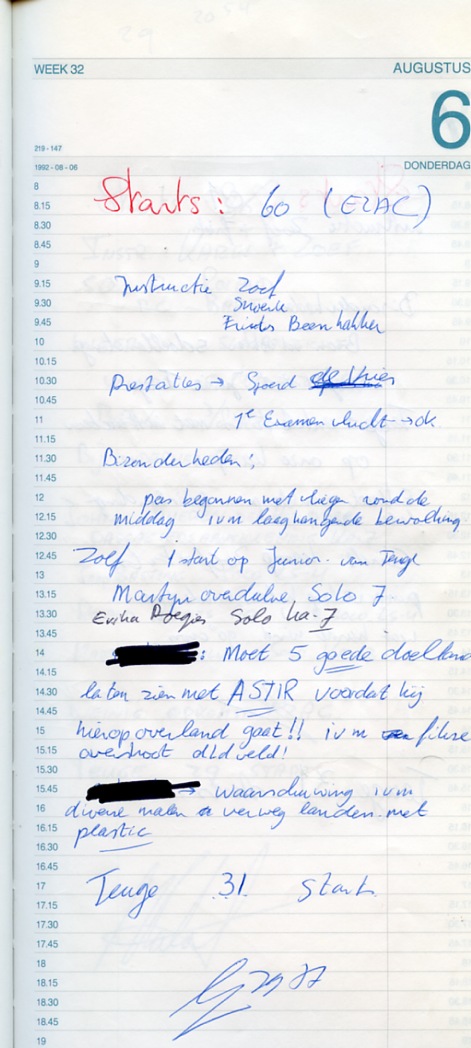 WEEK 32
AUGUSTUS
6
219 - 147
1992 - 08 - 06
DONDERDAG
8
8.15
Starts: 60 (EZAC)
8.30
8.45
9
9.15
Instructie Zoef
9.30
9.45
Beenhakker
10
10.15
10.30
Prestaties → Sjoerd
10.45
11
1e Examen vlucht → ok.
11.15
11.30
Bizonderheden:
11.45
12
pas begonnen met vliegen rond de
12.15
middag ivm laaghangende bewolking
12.30
12.45
1 start op Junior van Teuge
13
13.15
Martijn overdulve Solo 7.
13.30
Erika Solo Ka-7
13.45
14
: Moet 5 goede doelland
14.15
14.30
laten zien met ASTIR voordat hij
14.45
15
hierop overland gaat!! ivm
15.15
overshoot oldveld!
15.30
15.45
→ waarschuwing ivm
16
diverse malen verweg landen met
16.15
plastic
16.30
16.45
17
Teuge 31 Starts
17.15
17.30
17.45
18
18.15
18.30
18.45
19